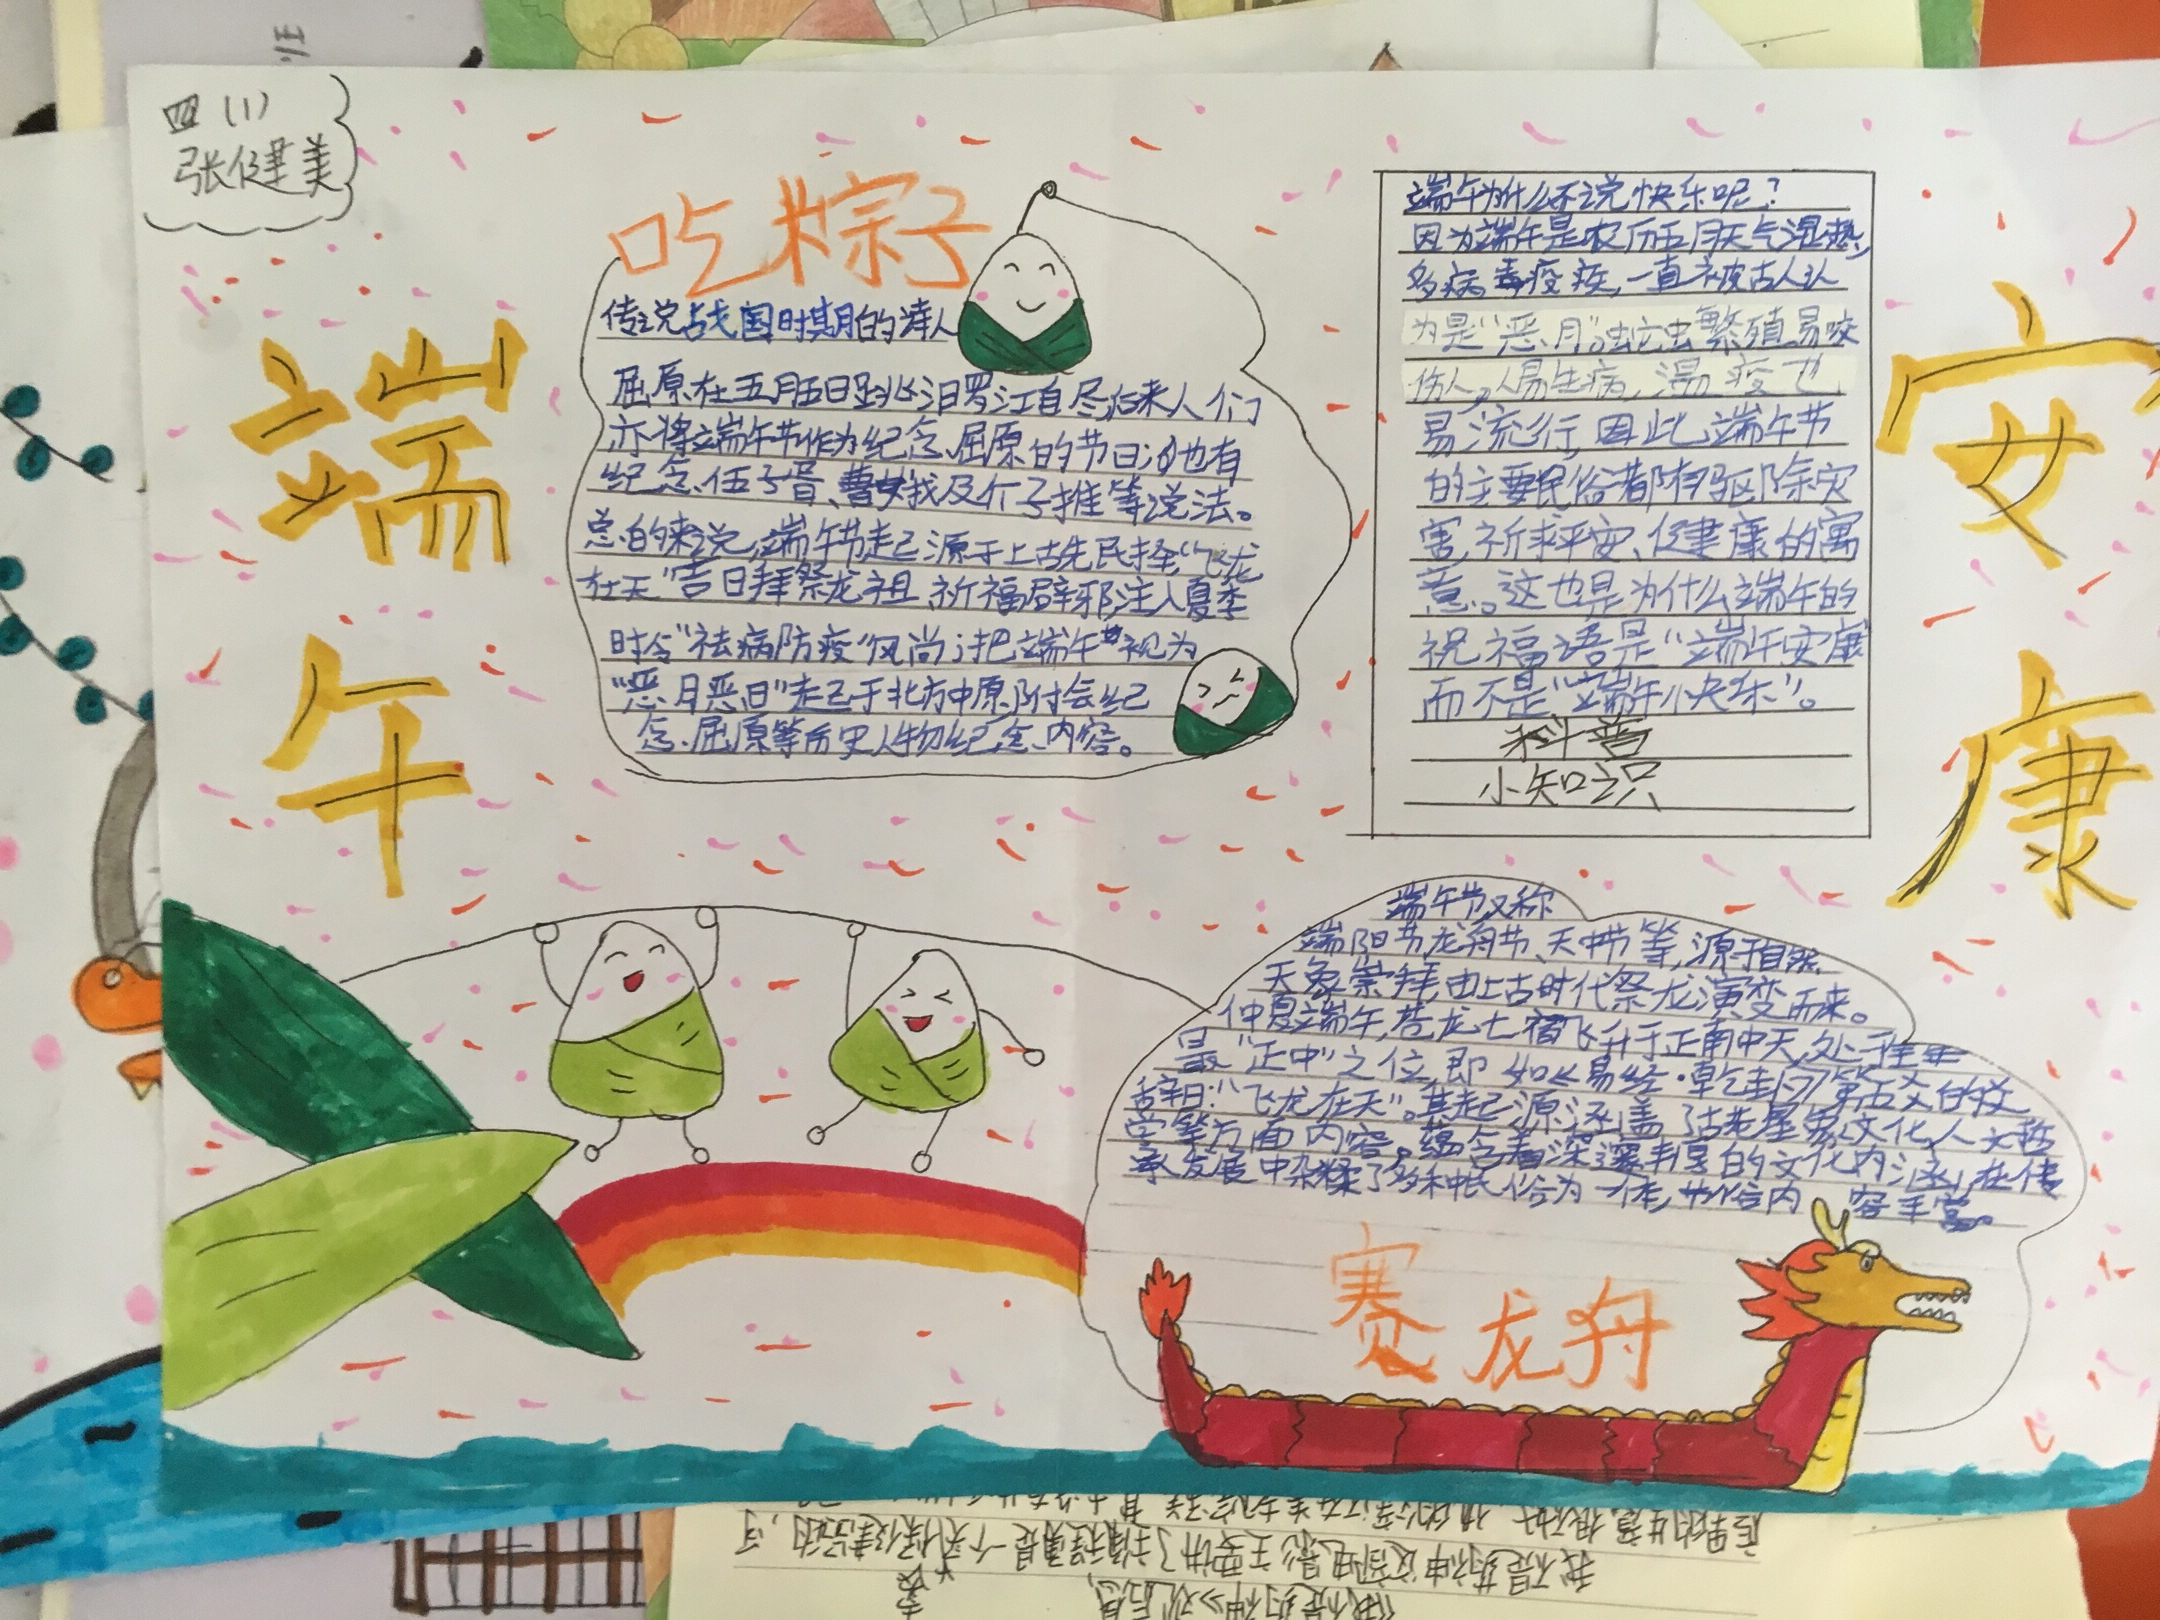 四(1)
张健美
端午
安康
吃粽子
传说战国时期的诗人
屈原在五月五日跳汨罗江自尽,后来人们
亦将端午节作为纪念屈原的节日;也有
纪念伍子胥、曹娥及介子推等说法。
总的来说,端午节起源于上古先民择“飞龙
在天”吉日拜祭龙祖、祈福辟邪,注入夏季
时令“祛病防疫”风尚;把端午视为
“恶月恶日”起于北方中原,附会纪
念屈原等历史人物纪念内容。
端午为什么不说快乐呢?
因为端午是农历五月天气湿热,
多病毒疫疾,一直被古人认
为是“恶月”。蛇虫繁殖,易咬
伤人,人易生病,瘟疫也
易流行,因此,端午节
的主要民俗都有驱除灾
害,祈求平安、健康的寓
意。这也是为什么端午的
祝福语是“端午安康”
而不是“端午快乐”。
科普
小知识
端午节又称
端阳节、龙舟节、天中节等,源于自然
天象崇拜,由上古时代祭龙演变而来。
仲夏端午,苍龙七宿飞升于正南中天,处
最“正中”之位,即如《易经·乾卦》第五爻的爻
辞曰:“飞龙在天”。其起源涵盖了古老星象文化、人文哲
学等方面内容。蕴含着深邃丰厚的文化内涵,在传
承发展中杂糅了多种民俗为一体,节俗内容丰富。
赛龙舟